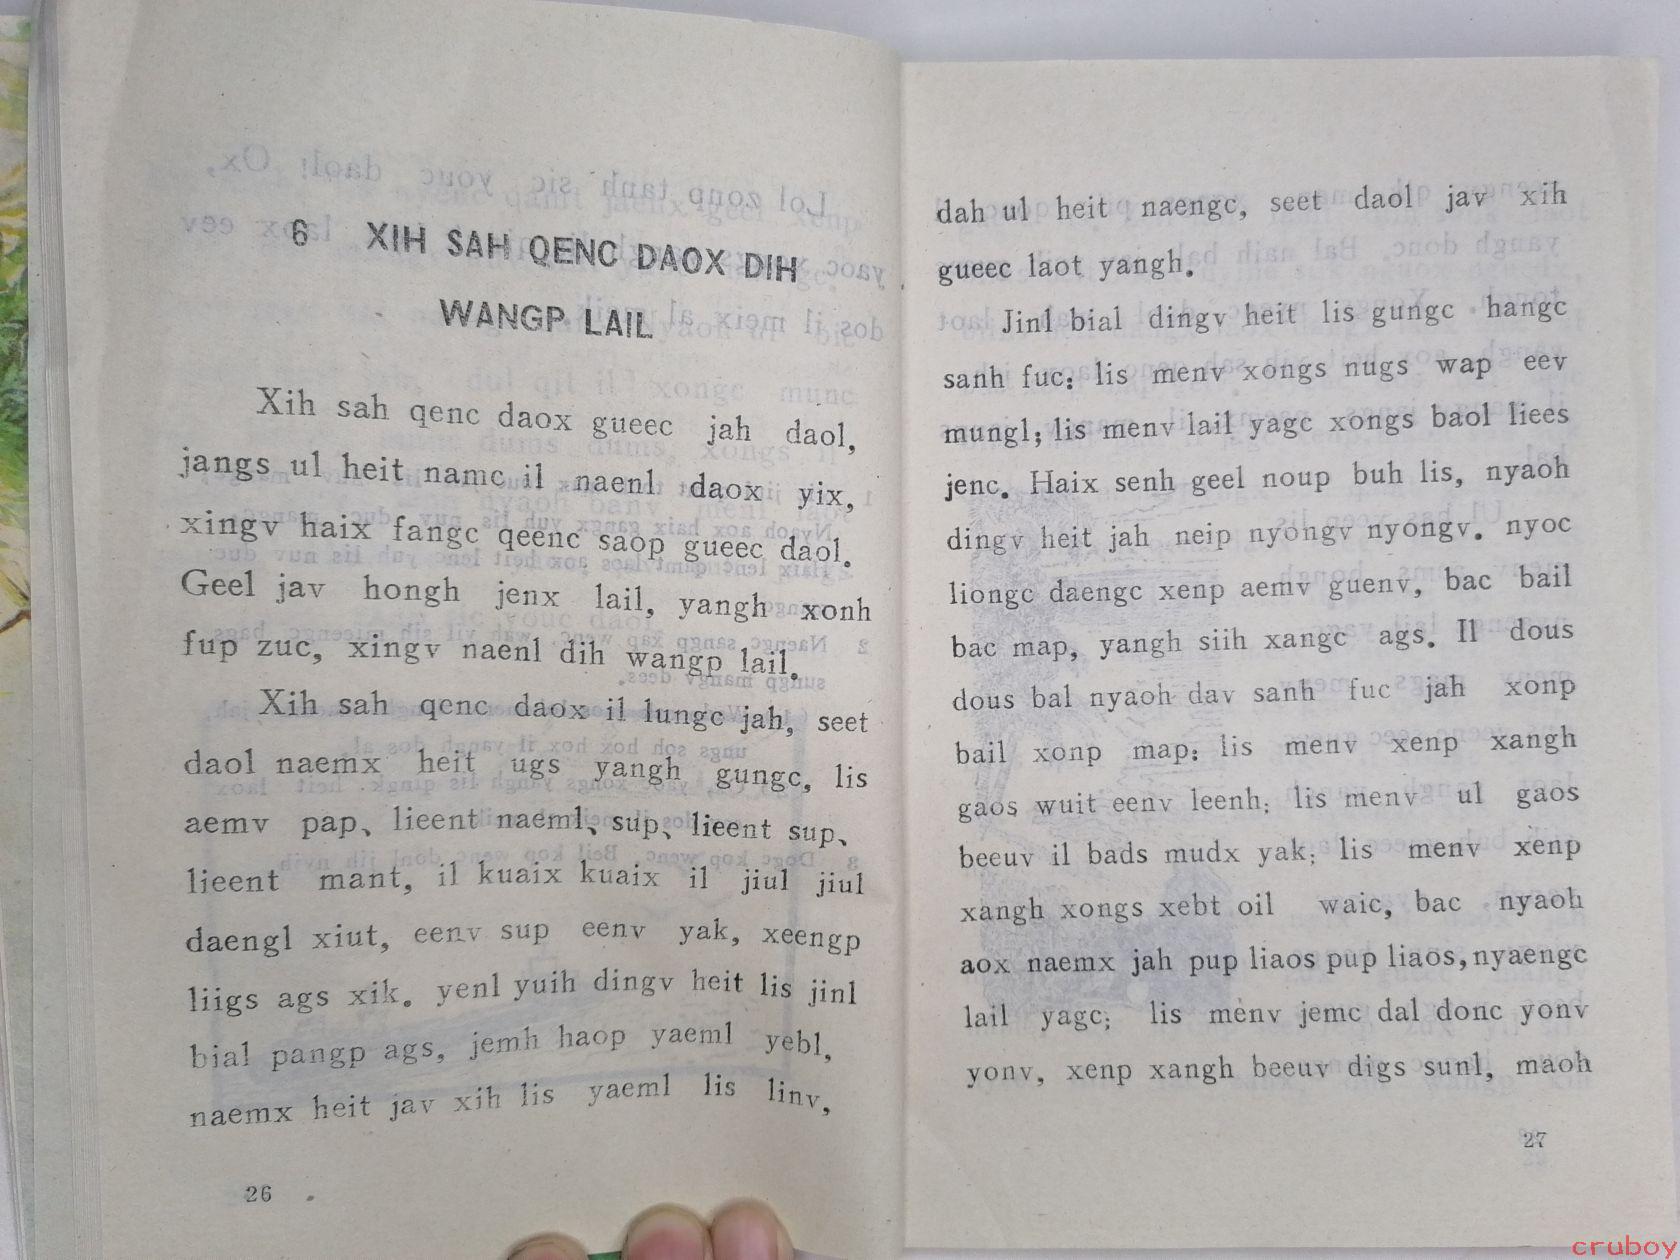 6 XIH SAH QENC DAOX DIH
WANGP LAIL
Xih sah qenc daox gueec jah daol,
jangs ul heit namc il naenl daox yix,
xingv haix fangc qeenc saop gueec daol.
Geel jav hongh jenx lail, yangh xonh
fup zuc, xingv naenl dih wangp lail.
Xih sah qenc daox il lungc jah, seet
daol naemx heit ugs yangh gungc, lis
aemv pap、lieent naeml、sup、lieent sup、
lieent mant, il kuaix kuaix il jiul jiul
daengl xiut, eenv sup eenv yak, xeengp
liigs ags xik. yenl yuih dingv heit lis jinl
bial pangp ags, jemh haop yaeml yebl,
naemx heit jav xih lis yaeml lis linv,
26
dah ul heit naengc, seet daol jav xih
gueec laot yangh.
Jinl bial dingv heit lis gungc hangc
sanh fuc: lis menv xongs nugs wap eev
mungl; lis menv lail yagc xongs baol liees
jenc. Haix senh geel noup buh lis, nyaoh
dingv heit jah neip nyongv nyongv. nyoc
liongc daengc xenp aemv guenv, bac bail
bac map, yangh siih xangc ags. Il dous
dous bal nyaoh dav sanh fuc jah xonp
bail xonp map: lis menv xenp xangh
gaos wuit eenv leenh; lis menv ul gaos
beeuv il bads mudx yak; lis menv xenp
xangh xongs xebt oil waic, bac nyaoh
aox naemx jah pup liaos pup liaos, nyaengc
lail yagc; lis menv jemc dal donc yonv
yonv, xenp xangh beeuv digs sunl, maoh
27
cruboy